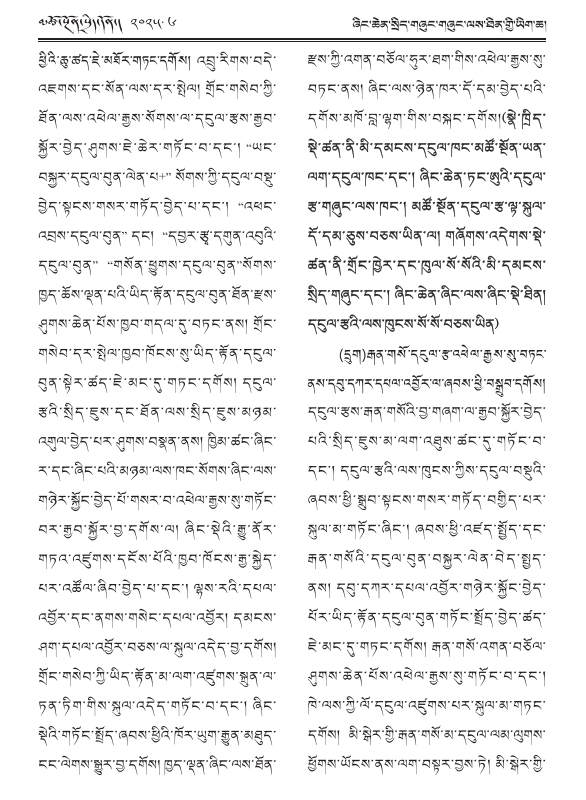 མཚོ་སྔོན་སྲིད་གཞུང་། ༢༠༢༥·༤
ཞིང་ཆེན་སྲིད་གཞུང་གཞུང་ལས་ཐིན་གྱི་ཡིག་ཆ།
ཕྱིའི་ཆུ་ཚད་ཇེ་མཐོར་གཏང་དགོས། འབྲུ་རིགས་བདེ་
འཇགས་དང་སོན་ལས་དར་སྤེལ། གྲོང་གསེབ་ཀྱི་
ཐོན་ལས་འཕེལ་རྒྱས་སོགས་ལ་དངུལ་རྩས་རྒྱབ་
སྐྱོར་བྱེད་ཤུགས་ཇེ་ཆེར་གཏོང་བ་དང་། “ཡང་
བསྐྱར་དངུལ་བུན་ལེན་པ+” སོགས་ཀྱི་དངུལ་བསྡུ་
བྱེད་སྟངས་གསར་གཏོད་བྱེད་པ་དང་། “འཕང་
འབྲས་དངུལ་བུན” དང། “དབྱར་རྩྭ་དགུན་འབུའི་
དངུལ་བུན” “གསོན་ཕྱུགས་དངུལ་བུན”སོགས་
ཁྱད་ཆོས་ལྡན་པའི་ཡིད་རྟོན་དངུལ་བུན་ཐོན་རྫས་
ཤུགས་ཆེན་པོས་ཁྱབ་གདལ་དུ་བཏང་ནས། གྲོང་
གསེབ་དར་སྤེལ་ཁྱབ་ཁོངས་སུ་ཡིད་རྟོན་དངུལ་
བུན་སྟེར་ཚད་ཇེ་མང་དུ་གཏང་དགོས། དངུལ་
རྩའི་སྲིད་ཇུས་དང་ཐོན་ལས་སྲིད་ཇུས་མཉམ་
འགུལ་བྱེད་པར་ཤུགས་བསྣན་ནས། ཁྱིམ་ཚང་ཞིང་
ར་དང་ཞིང་པའི་མཉམ་ལས་ཁང་སོགས་ཞིང་ལས་
གཉེར་སྐྱོང་བྱེད་པོ་གསར་བ་འཕེལ་རྒྱས་སུ་གཏོང་
བར་རྒྱབ་སྐྱོར་བྱ་དགོས་ལ། ཞིང་སྡེའི་རྒྱུ་ནོར་
གཏའ་འཛུགས་དངོས་པོའི་ཁྱབ་ཁོངས་རྒྱ་སྐྱེད་
པར་འཚོལ་ཞིབ་བྱེད་པ་དང་། ལྷས་རའི་དཔལ་
འབྱོར་དང་ནགས་གསེང་དཔལ་འབྱོར། དམངས་
ཤག་དཔལ་འབྱོར་བཅས་ལ་སྐུལ་འདེད་བྱ་དགོས།
གྲོང་གསེབ་ཀྱི་ཡིད་རྟོན་མ་ལག་འཛུགས་སྐྲུན་ལ་
ཏན་ཏིག་གིས་སྐུལ་འདེད་གཏོང་བ་དང་། ཞིང་
སྡེའི་གཏོང་སྤྲོད་ཞབས་ཕྱིའི་ཁོར་ཡུག་རྒྱུན་མཐུད་
ངང་ལེགས་སྒྱུར་བྱ་དགོས། ཁྱད་ལྡན་ཞིང་ལས་ཐོན་
རྫས་ཀྱི་འགན་བཅོལ་ཧུར་ཐག་གིས་འཕེལ་རྒྱས་སུ་
བཏང་ནས། ཞིང་ལས་ཉེན་ཁར་དོ་དམ་བྱེད་པའི་
དགོས་མཁོ་བླ་ལྷག་གིས་བསྐང་དགོས།(སྣེ་ཁྲིད་
སྡེ་ཚན་ནི་མི་དམངས་དངུལ་ཁང་མཚོ་སྔོན་ཡན་
ལག་དངུལ་ཁང་དང་། ཞིང་ཆེན་ཏང་ཨུའི་དངུལ་
རྩ་གཞུང་ལས་ཁང་། མཚོ་སྔོན་དངུལ་རྩ་ལྟ་སྐུལ་
དོ་དམ་ཅུས་བཅས་ཡིན་ལ། གཞོགས་འདེགས་སྡེ་
ཚན་ནི་གྲོང་ཁྱེར་དང་ཁུལ་སོ་སོའི་མི་དམངས་
སྲིད་གཞུང་དང་། ཞིང་ཆེན་ཞིང་ལས་ཞིང་སྡེ་ཐིན།
དངུལ་རྩའི་ལས་ཁུངས་སོ་སོ་བཅས་ཡིན)
(དྲུག)རྒན་གསོ་དངུལ་རྩ་འཕེལ་རྒྱས་སུ་བཏང་
ནས་དབུ་དཀར་དཔལ་འབྱོར་ལ་ཞབས་ཕྱི་བསྒྲུབ་དགོས།
དངུལ་རྩས་རྒན་གསོའི་བྱ་གཞག་ལ་རྒྱབ་སྐྱོར་བྱེད་
པའི་སྲིད་ཇུས་མ་ལག་འཐུས་ཚང་དུ་གཏོང་བ་
དང་། དངུལ་རྩའི་ལས་ཁུངས་ཀྱིས་དངུལ་བསྡུའི་
ཞབས་ཕྱི་སྒྲུབ་སྟངས་གསར་གཏོད་བགྱིད་པར་
སྐུལ་མ་གཏོང་ཞིང་། ཞབས་ཕྱི་འཛད་སྤྱོད་དང་
རྒན་གསོའི་དངུལ་བུན་བསྐྱར་ལེན་བེད་སྤྱད་
ནས། དབུ་དཀར་དཔལ་འབྱོར་གཉེར་སྐྱོང་བྱེད་
པོར་ཡིད་རྟོན་དངུལ་བུན་གཏོང་སྤྲོད་བྱེད་ཚད་
ཇེ་མང་དུ་གཏང་དགོས། རྒན་གསོ་འགན་བཅོལ་
ཤུགས་ཆེན་པོས་འཕེལ་རྒྱས་སུ་གཏོང་བ་དང་།
ཁེ་ལས་ཀྱི་ལོ་དངུལ་འཛུགས་པར་སྐུལ་མ་གཏང་
དགོས། མི་སྒེར་གྱི་རྒན་གསོ་མ་དངུལ་ལམ་ལུགས་
ཕྱོགས་ཡོངས་ནས་ལག་བསྟར་བྱས་ཏེ། མི་སྒེར་གྱི་